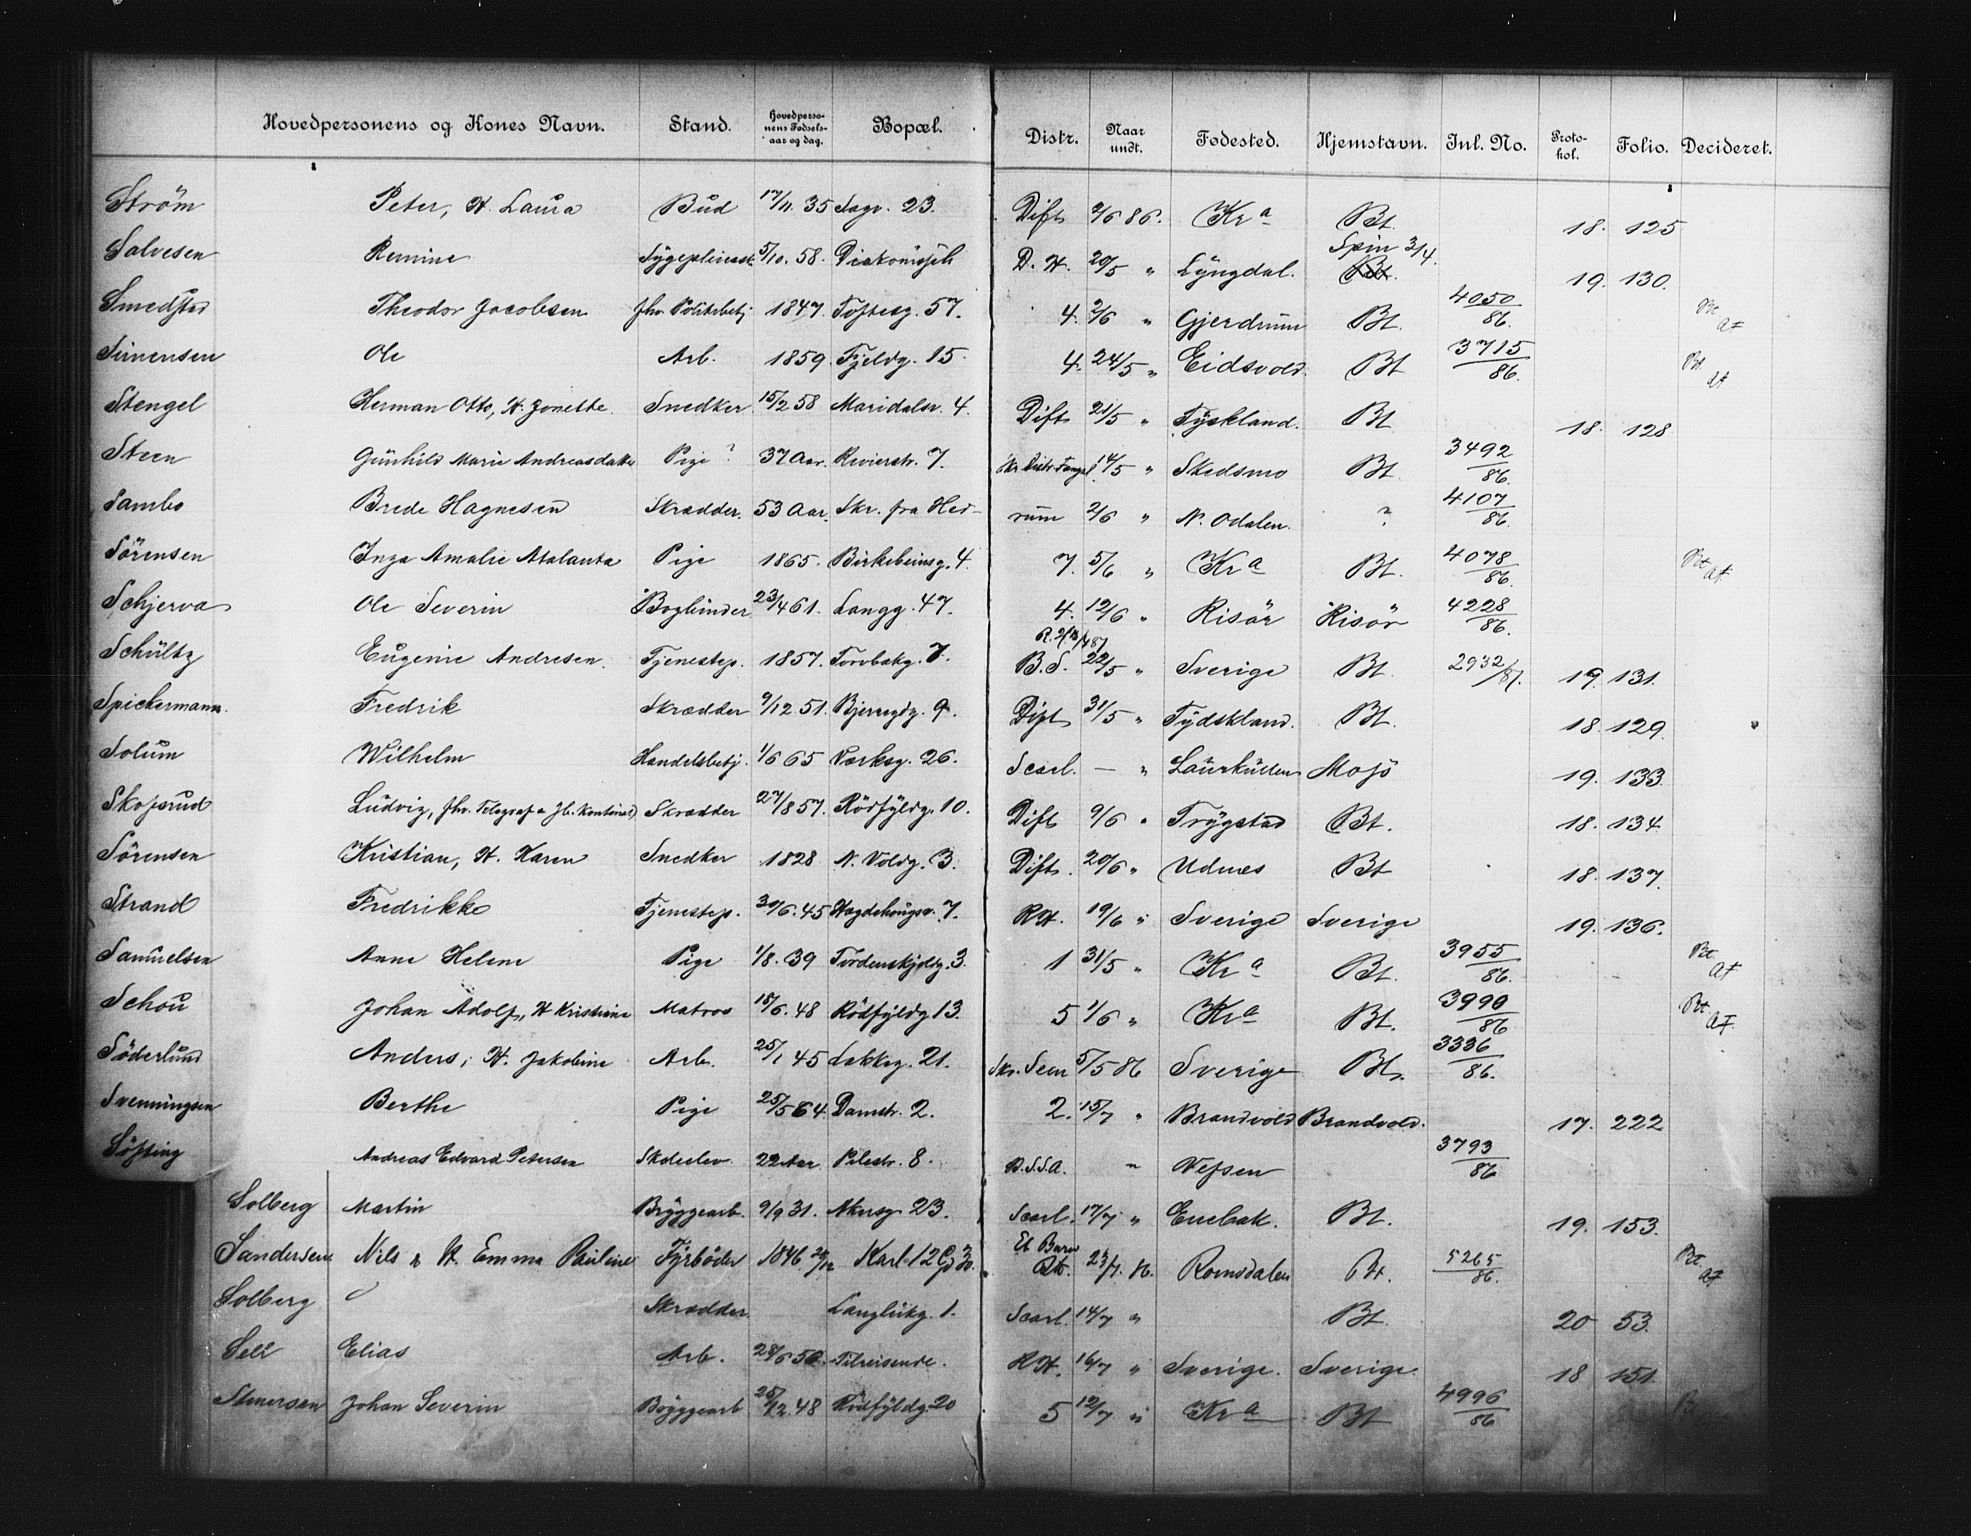 Hovedpersonens og Kones Navn. Stand. Hovedpersonens Fødselsaar og dag. Bopæl. Distr. Naar undt. Fødested. Hjemstavn. Inl. No. Protokol. Folio. Decideret.
Ström Peter, H. Laura Bud 17/11. 35 Sagv. 23. Dift 2/6 86. Kra Bt. 18. 125
Salvesen Remine 5/10. 58. D. H. 20/5 " Lyngdal. Spin 3/4. Bt. 19. 130.
Smedstad Theodor Jacobsen fhv. Politibetj 1847. Toftesg. 57. 4. 2/6 " Gjerdrum Bt. 4050/86. Bt af
Simensen Ole Arb. 1859. Fjeldg. 15. 4. 24/5 " Eidsvold. Bt 3715/86. Bt af
Stengel Herman Otto, H. Jonette Snedker 15/2 58 Maridalsv. 4. Dift 21/5 " Tyskland. Bt 18. 128
Steen Gunhild Marie Andreasdatter Pige ? 37 Aar. Rivierstr. 7. 14/5 " Skedsmo Bt. 3492/86.
Sambo Brede Hagnesen Skrædder. 53 Aar. Skr. fra Hedrum 2/6 " N. Odalen. ? 4107/86.
Sörensen Inga Amalie Atalanta Pige 1865. Birkebeinsg. 4. 7. 5/6 " Kra Bt. 4078/86. Bt af
Schjerva Ole Severin Bogbinder 23/4 61. Langg. 47. 4. 12/6 " Risör Risör 4228/86.
Schültz Eugenie Andresen. Tjenestep. 1857. Torvbakg. 7. B.S. 22/5 " Sverige Bt. 2932/87. 19. 131.
Spickermann. Fredrik Skrædder 9/12 51. Bjerregdg. 9. Dift 31/5 " Tydskland. Bt. 18. 129.
Solum Wilhelm Handelsbetj. 1/6 65 Værksg. 26. Scarl. — " Laurkullen Mosjö 19. 133.
Skofsrud Ludvig, Skrædder 27/8 57. Rödfyldg. 10. Dift 9/6 " Trygstad Bt. 18. 134.
Sörensen Kristian, H. Karen Snedker 1828 N. Voldg. 3. Dift. 20/6 " Udnæs Bt 18. 137.
Strand Fredrikke Tjenestep. 30/6. 45 Hagdehougsv. 7. RH. 19/6 " Sverige Sverige 19. 136.
Samuelsen Anne Helene Pige 1/8. 39 Tordenskjoldg. 3. 1 31/5 " Kra Bt. 3955/86. Bt. af
Schou Johan Adolf, H Kristiane Matros 15/6. 48 Rödfyldg 13. 5 1/6 " Kra Bt. 3990/86 Bt. af.
Söderlund Anders, H. Jakobine Arb. 25/1 45 Lakkeg. 21. Skr. Sem 5/5 86 Sverige Bt. 3336/86.
Svenningsen Berthe Pige 25/5 64. Damstr. 2. 2. 15/7 " Brandvold Brandvold. 17. 222
Söfting Andreas Edvard Petersen Skoleelev 22 Aar Pilestr. 8. B.S.S.A. " Vefsen 3793/86
Solberg Martin Bryggearb. 9/9 31. Akersg 23. Scarl. 17/7 " Enebak. Bt. 19. 153.
Sandersen Nils & H. Emma Pauline Fyrböder 1846 Karl 12 Et Barn 23/7. 86. Romsdalen Bt. 5265/86. Bt. af
Solberg Skrædder Langlikg. 1. Scarl. 14/7 " Bt. 20 53.
Sell Elias Arb. 28/6 56. Tilreisende. RH. 16/7 " Sverige. Sverige. 18 151.
Stenersen Johan Severin Bryggearb 25/12. 48 Rödfyldg. 20 5 12/7 " Kra Bt 4996/86 B